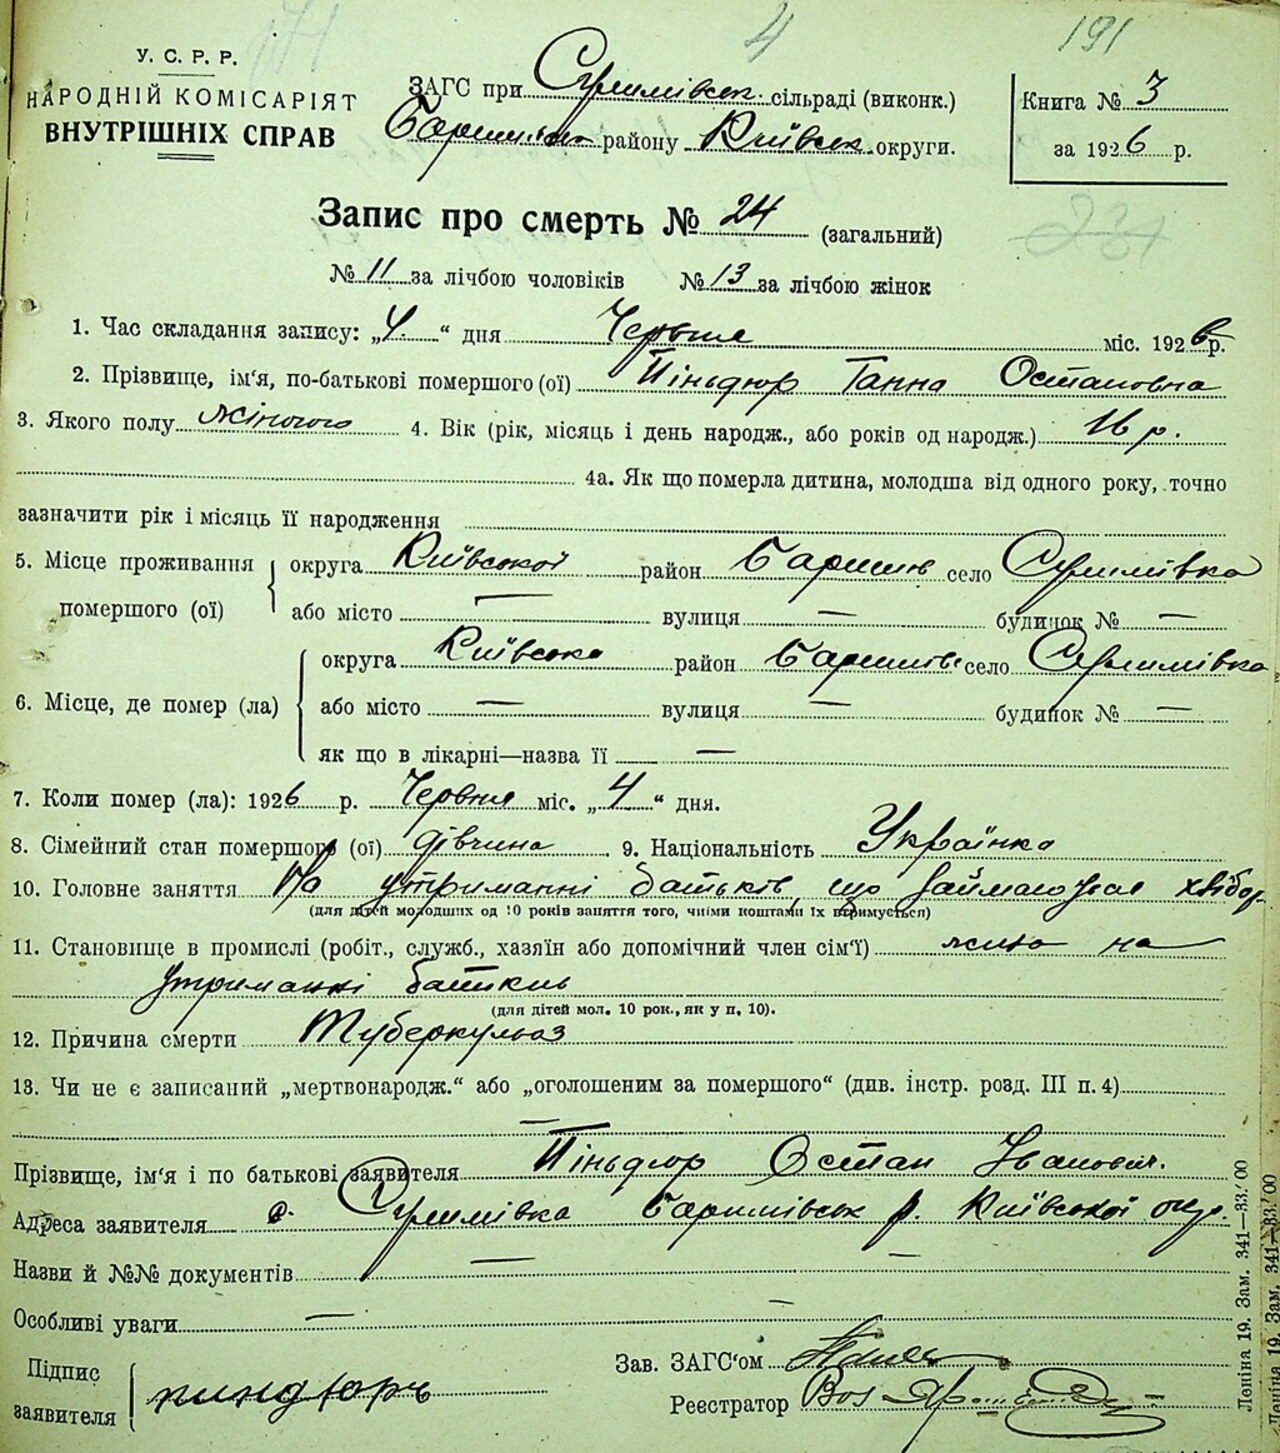 171 4 191
У. С. Р. Р.
НАРОДНІЙ КОМІСАРІЯТ
ВНУТРІШНІХ СПРАВ
ЗАГС при Сулимівськ. сільраді (виконк.)
району Київськ. округи.
Книга № 3
за 1926 р.
Запис про смерть № 24 (загальний)
231
№ 11 за лічбою чоловіків № 13 за лічбою жінок
1. Час складання запису: „4.“ дня Червня міс. 1926 р.
2. Прізвище, ім‘я, по-батькові помершого (ої) Піньдюр Ганна Остаповна
3. Якого полу жіночого 4. Вік (рік, місяць і день народж., або років од народж.) 16 р.
4а. Як що померла дитина, молодша від одного року, точно
зазначити рік і місяць її народження
5. Місце проживання помершого (ої) округа Київської район Баришів село Сулимівка
або місто — вулиця — будинок № —
6. Місце, де помер (ла) округа Київська район Баришівс село Сулимівка
або місто — вулиця — будинок № —
як що в лікарні—назва її —
7. Коли помер (ла): 1926 р. Червня міс. „4“ дня.
8. Сімейний стан помершого (ої) дівчина 9. Національність Українка
10. Головне заняття На утриманні батьків, що займаються хлібор
(для дітей молодших од 10 років заняття того, чиїми коштами їх втримується)
11. Становище в промислі (робіт., служб., хазяїн або допомічний член сім‘ї) жила на
утриманні батьків
(для дітей мол. 10 рок., як у п. 10).
12. Причина смерти Туберкульоз
13. Чи не є записаний „мертвонародж.“ або „оголошеним за помершого“ (див. інстр. розд. III п. 4)
—
Прізвище, ім‘я і по батькові заявителя Піньдюр Остап Іванович.
Адреса заявителя с. Сулимівка Баришівськ р. Київської окр.
Назви й №№ документів — —
Особливі уваги — —
Підпис заявителя пиндюръ
Зав. ЗАГС‘ом
Реєстратор
Леніна 19. Зам. 341—33.′00
Леніна 19. Зам. 341—33.′00